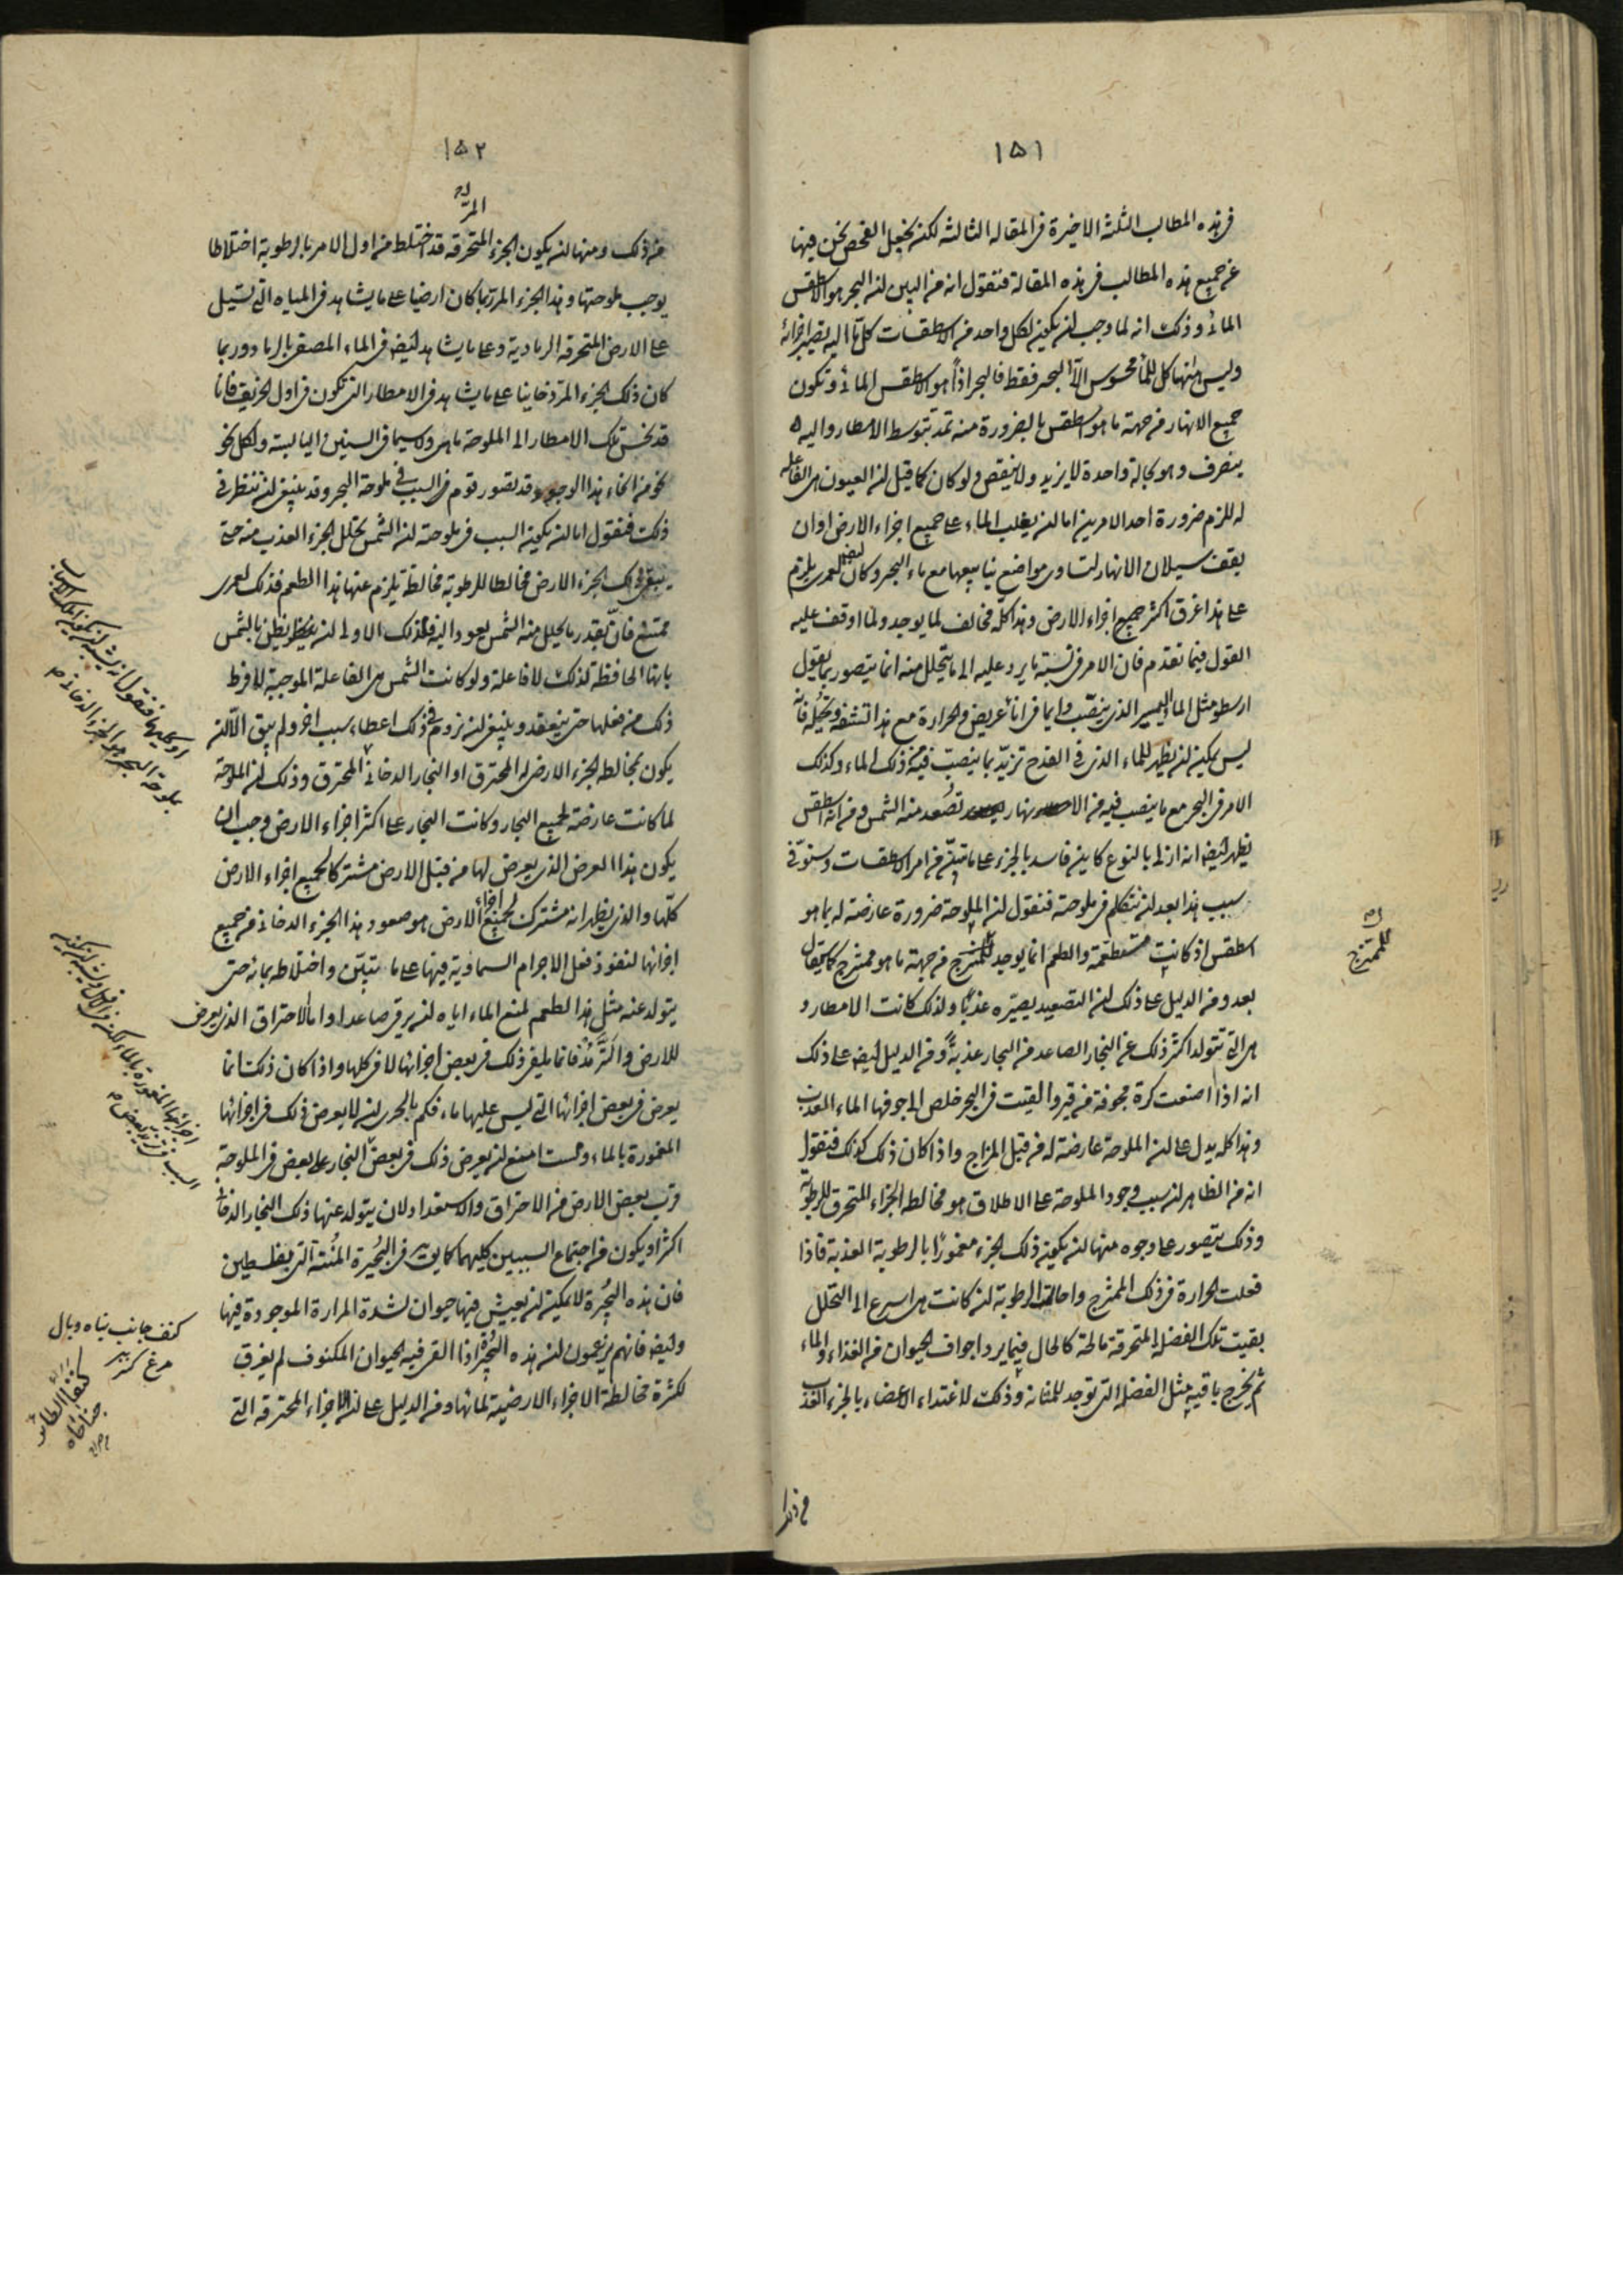 ١٥١
فى هذه المطالب الثلثة الاخيرة فى المقالة الثالثة لكنه نجعل الفحص نحن فيها
عن جميع هذه المطالب فى هذه المقالة فنقول انه من البين ان البحر هو الاسطقس
المائى وذلك انه لما وجب ان يكون لكل واحد من الاسطقسات كل ما اليه يصير اجزائه
وليس هنا كل للماء محسوس الا البحر فقط فالبحر اذاً هو الاسطقس المائى وتكون
جميع الانهار من جهة ما هو اسطقس بالضرورة منه تمد بتوسط الامطار واليه
ينصرف وهو بحالة واحدة لا يزيد ولا ينقص ولو كان كما قيل ان العيون هى الفاعلة
له للزم ضرورة احد الامرين اما ان يغلب الماء على جميع اجزاء الارض او ان
يقف سيلان الانهار لتساوى مواضع ينابيعها مع ماء البحر وكان لعمرى يلزم
على هذا غرق اكثر جميع اجزاء الارض وهذا كله مخالف لما يوجد ولما اوقف عليه
القول فيما تقدم فان الامر فى نسبة ما يرد عليه الى ما يتحلل منه انما يتصور بما يقول
ارسطو مثل الماء اليسير الذى ينصب دايما فى اناء عريض والحرارة مع هذا تنشفه وتحلله فانه
ليس يمكن ان يظهر للماء الذى فى القدح تزيد بما ينصب فيه من ذلك الماء وكذلك
الامر فى البحر مع ما ينصب فيه من الانهار تصعد منه الشمس ومن انه اسطقس
يظهر ايضا انه ازلى بالنوع كاين فاسد بالجزء على ما تبين من امر الاسطقسات وسنوفى
سبب هذا بعد ان نتكلم فى ملوحته فنقول ان الملوحة ضرورة عارضة له بما هو
اسطقس اذ كانت مستطعمة والطعم انما يوجد للممتزج من جهة ما هو ممتزج كما يقال
بعد ومن الدليل على ذلك ان التصعيد يصيره عذباً ولذلك كانت الامطار و
هى التى تتولد اكثر ذلك عن البخار الصاعد من البحار عذبة ومن الدليل ايضا على ذلك
انه اذا صنعت كرة مجوفة من قير والقيت فى البحر خلص الى جوفها الماء العذب
وهذا كله يدل على ان الملوحة عارضة له من قبل المزاج واذا كان ذلك كذلك فنقول
انه من الظاهر ان سبب وجود الملوحة على الاطلاق هو مخالطة الجزء المحترق للرطوبة
وذلك يتصور على وجوه منها ان يكون ذلك الجزء مغموراً بالرطوبة العذبة فاذا
فعلت الحرارة فى ذلك الممتزج واحالت الرطوبة ان كانت هى اسرع الى التحلل
بقيت تلك الفضلة المتحرقة مالحة كالحال فيما يرد اجواف الحيوان من الغذاء والماء
ثم يخرج باقيه مثل الفضلة التى توجد للمثانة وذلك لاغتذاء الاعضاء بالجزء العذب
من ذلك
للممتزج
١٥٢
المر
من ذلك ومنها ان يكون الجزء المتحرقة قد اختلط من اول الامر بالرطوبة اختلاطا
يوجب ملوحتها وهذا الجزء المر ربما كان ارضيا على ما يشاهد فى المياه التى تسيل
على الارض المتحرقة الرمادية وعلى ما يشاهد ايضا فى الماء المصفى بالرماد وربما
كان ذلك الجزء المر دخانيا على ما يشاهد فى الامطار التى تكون فى اول الخريف فانا
قد نحس تلك الامطار الى الملوحة ما هى ولا سيما فى السنين اليابسة ولكل نحو
نحو من انحاء هذا الوجود وقد تصور قوم فى السبب فى ملوحة البحر وقد ينبغى ان ننظر فى
ذلك فنقول اما ان يكون السبب فى ملوحته ان الشمس تحلل الجزء العذب منه حتى
يبقى ذلك الجزء الارضى مخالطا للرطوبة مخالطة يلزم عنها هذا الطعم فذلك لعمرى
ممتنع فان بقدر ما يحلل منه الشمس يعود اليه ولذلك الاولى ان يظن بالشمس
بانها الحافظة لذلك لا فاعلة ولو كانت الشمس هى الفاعلة الموجبة لافرط
ذلك من فعلها حتى ينعقد وينبغى ان نروم فى ذلك اعطاء سبب اخر ولم يبق الا ان
يكون بمخالطة الجزء الارضى له المحترق او البخار الدخانى المحترق وذلك ان الملوحة
لما كانت عارضة لجميع البحار وكانت البحار على اكثر اجزاء الارض وجب ان
يكون هذا العرض الذى يعرض لها من قبل الارض مشتركا لجميع اجزاء الارض
كلها والذى يظهر انه مشترك لجميع اجزاء الارض هو صعود هذا الجزء الدخانى من جميع
اجزائها لنفوذ فعل الاجرام السماوية فيها على ما تبين واختلاطه بمائه حتى
يتولد عنه مثل هذا الطعم لمنع الماء اياه ان يرقى صاعدا واما الاحتراق الذى يعرض
للارض والترمد فانما يلفى ذلك فى بعض اجزائها لا فى كلها واذا كان ذلك انما
يعرض فى بعض اجزائها التى ليس عليها ماء فكم بالحرى ان لا يعرض ذلك فى اجزائها
المغمورة بالماء ولست امنع ان يعرض ذلك فى بعض البحار على بعض فى الملوحة
قرب بعض الارض من الاحتراق والاستعداد لان يتولد عنها ذلك البخار الدخانى
اكثر او يكون من اجتماع السببين كليهما كما يوجد فى البحيرة المنتنة التى بفلسطين
فان هذه البحيرة لا يمكن ان يعيش فيها حيوان لشدة المرارة الموجودة فيها
وايضا فانهم يزعمون ان هذه البحيرة اذا القى فيه الحيوان المكنوف لم يغرق
لكثرة مخالطة الاجزاء الارضية لمائها ومن الدليل على ان الاجزاء المحترقة التى
ملوحة البحر هو الجزء الدخانى
اجزائها المغمورة بالماء لكن
السبب فى تزيد بعض
كنف جانب پناه وبال
مرغ
كنفا الطائر
جناحاه